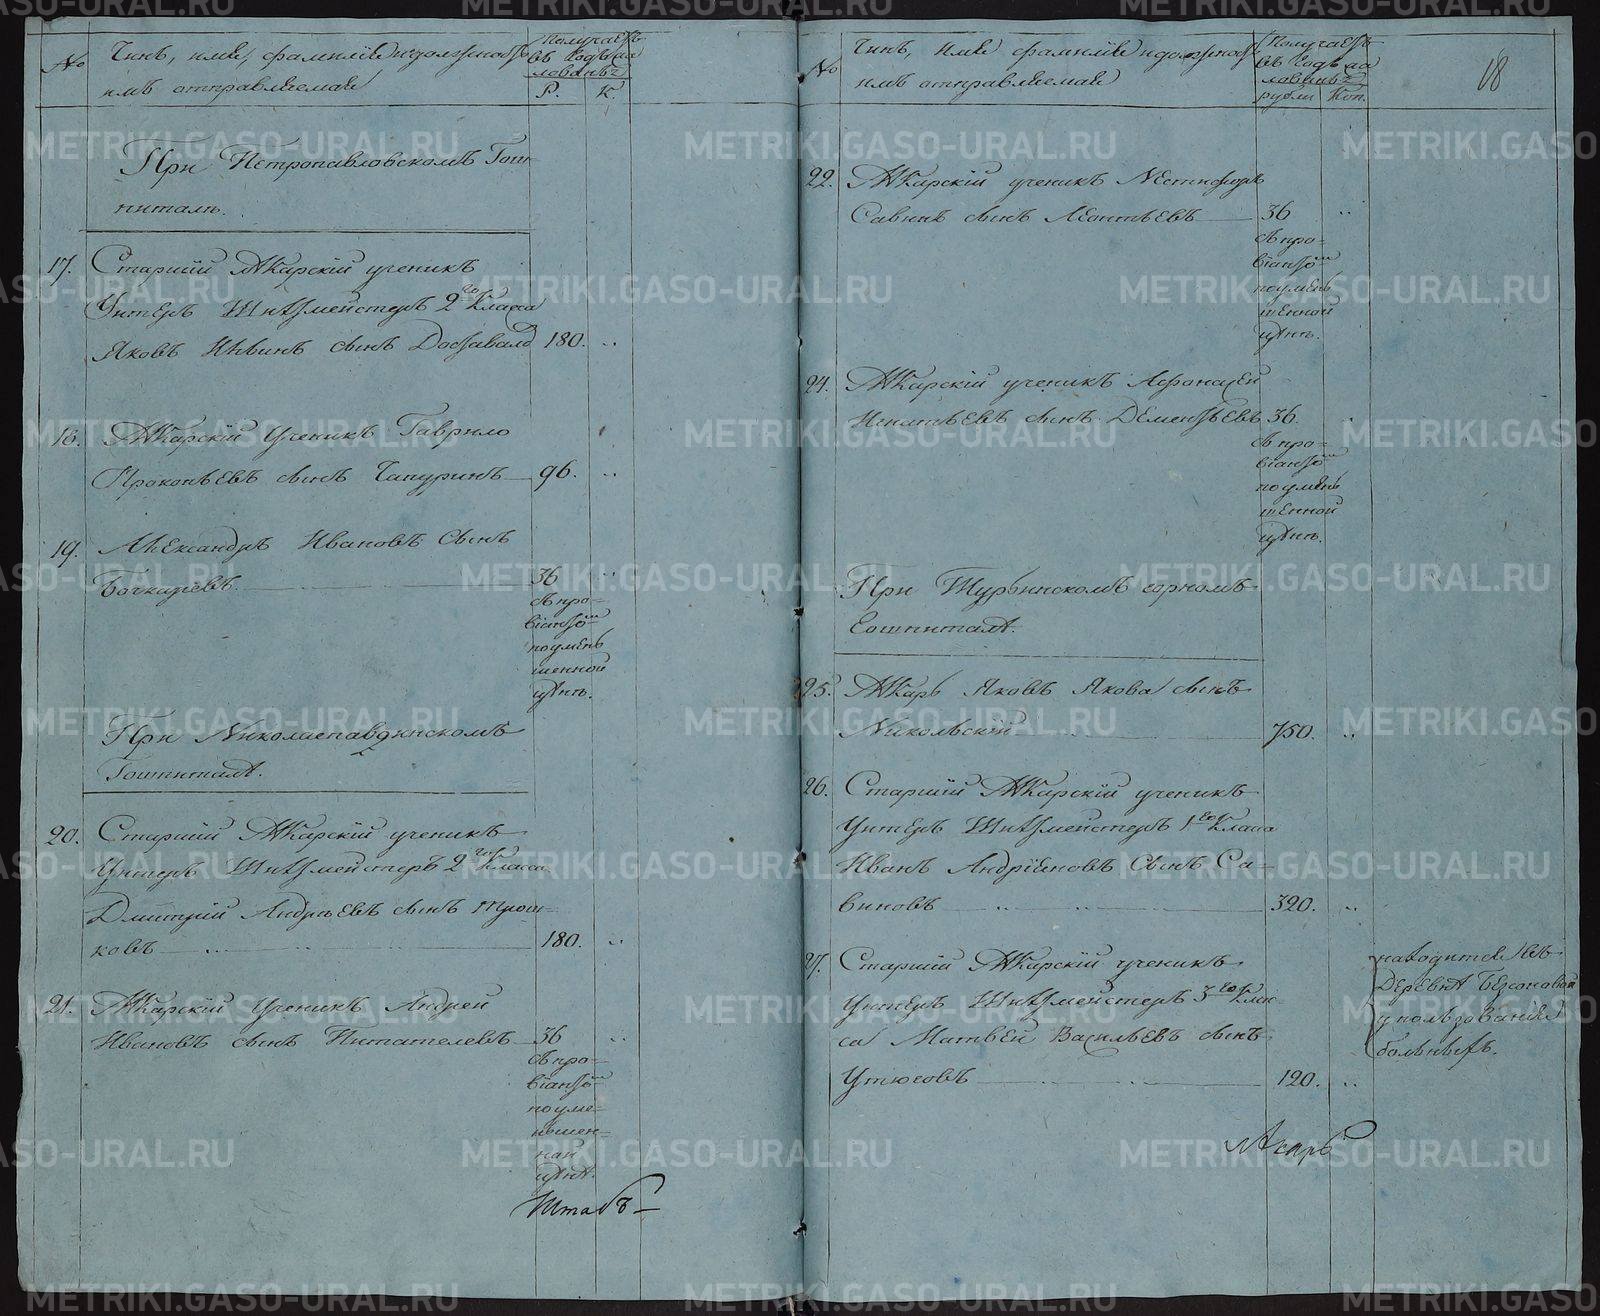 №
Чинъ, имя, фамилія и должность
имъ отправляемая
Получаетъ
въ годъ жа
лованья
Р. К.
При Петропавловскомъ Гош-
питалѣ.
17. Старшій Лѣкарскій ученикъ
Унтеръ Шихтмейстеръ 2го класса
Яковъ сынъ 180. ..
18. Лѣкарскій Ученикъ Гаврило
Прокопьевъ сынъ Чапуринъ 96. ..
19. Александръ Ивановъ Сынъ
Бочкаревъ. 36 ..
съ про-
віантомъ
по умень
шенной
цѣнѣ.
При Николаепавдинскомъ
Гошпиталѣ.
20. Старшій Лѣкарскій ученикъ
Унтеръ Шихтмейстеръ 2го класса
Дмитрій Андреевъ сынъ Трош-
ковъ 180. ..
21. Лѣкарскій Ученикъ Андрей
Ивановъ сынъ Питателевъ 36 ..
съ про-
віантомъ
по уме-
ньшен-
ной
цѣнѣ.
Штабъ-
№
Чинъ, имя фамилія и должность
имъ отправляемая
Получаетъ
въ годъ жа
лованья
рубли Коп.
18
22. Лѣкарскій ученикъ
Савинъ сынъ Леонтьевъ 36 ..
съ про-
віантомъ
по умень
шенной
цѣнѣ.
24. Лѣкарскій ученикъ Афонасей
Игнатьевъ сынъ Дементьевъ 36.
съ про-
віантомъ
по умень
шенной
цѣнѣ.
При Турьинскомъ горномъ
Гошпиталѣ.
25. Лѣкарь Яковъ Якова сынъ
Никольскій 750. ..
26. Старшій Лѣкарскій ученикъ
Унтеръ Шихтмейстеръ 1го класа
Иванъ Андріяновъ Сынъ Са-
виновъ 320. ..
27. Старшій Лѣкарскій ученикъ
Унтеръ Шихтмейстеръ 3го клас
са Матвей Васильевъ сынъ
Утюсовъ 120. ..
находится въ
деревнѣ Безсоновой
у пользованія
больныхъ.
Лекарь
METRIKI.GASO-URAL.RU